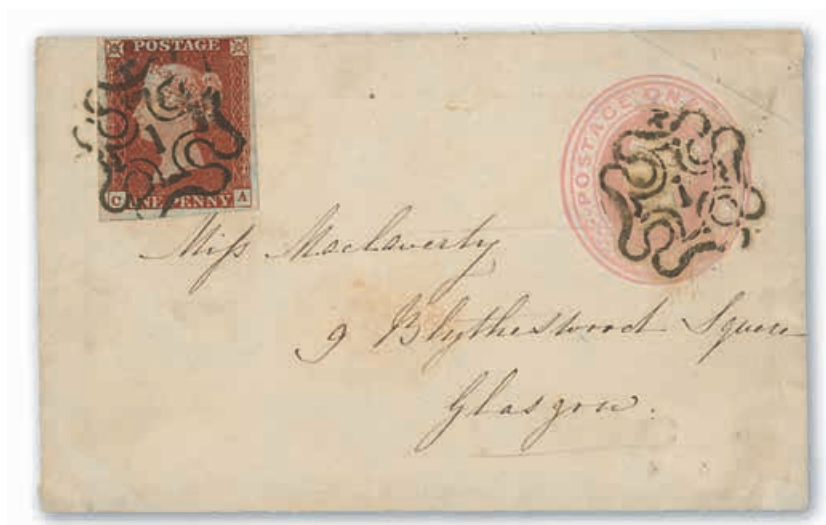 POSTAGE
ONE PENNY
C A
POSTAGE ONE
1
1
Miss Maclaverty
9 Blytheswood Square
Glasgow.